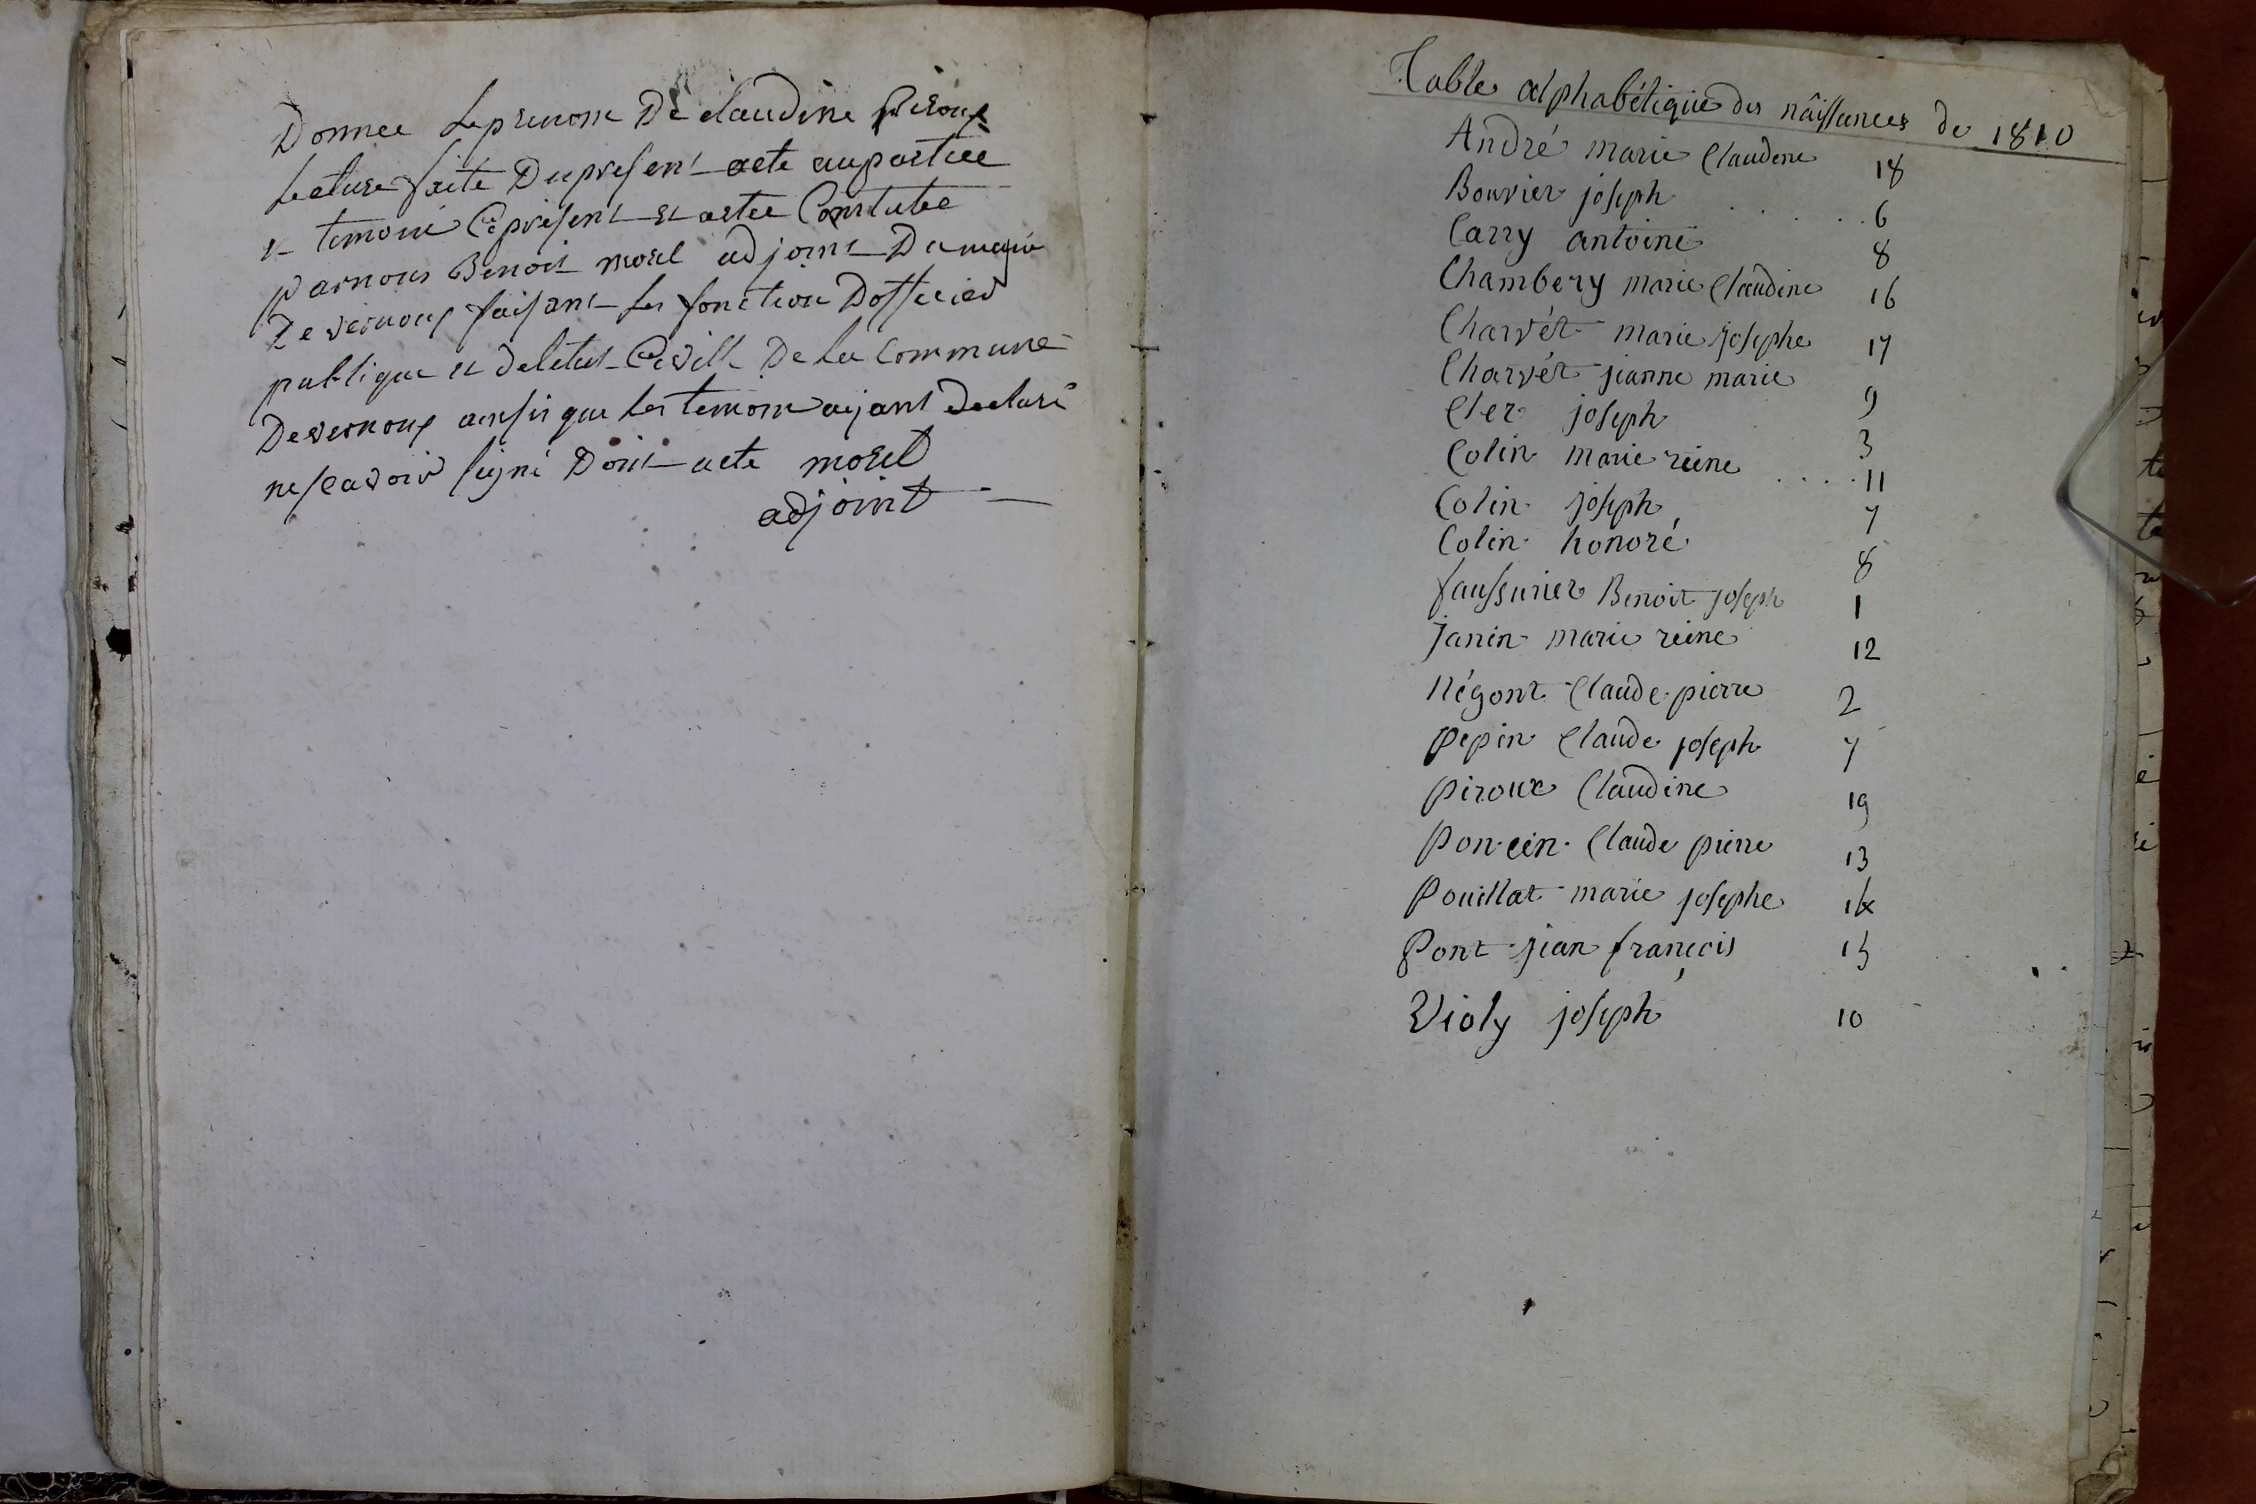 Donnee Le prenom De claudine Piroux
Lecture faite Du present acte au partiee
et temoins Ce present et actee Constatee
par nous Benoit morel adjoint Du maire
De vernoux faisant les fonction Dofficier
publique et deletat Civill De la Commune
De vernoux ainsis que les temoin aijant declaré
ne scavoir signé Dont acte morel
adjoint
Table alphabétique des nâissances de 1810
André marie Claudine 18
Bouvier joseph ..... 6
Carry antoine 8
Chambery marie Claudine 16
Charvét marie josephe 17
Charvét jeanne marie 9
Cler joseph 3
Colin marie reine .... 11
Colin joseph 7
Colin honoré 8
faussurier Benoit joseph 1
Janin marie reine 12
Négont Claude pierre 2
pepin Claude joseph 7
piroux Claudine 19
Poncin Claude pierre 13
Pouillat marie josephe 14
Pont jean françois 15
Violy joseph 10